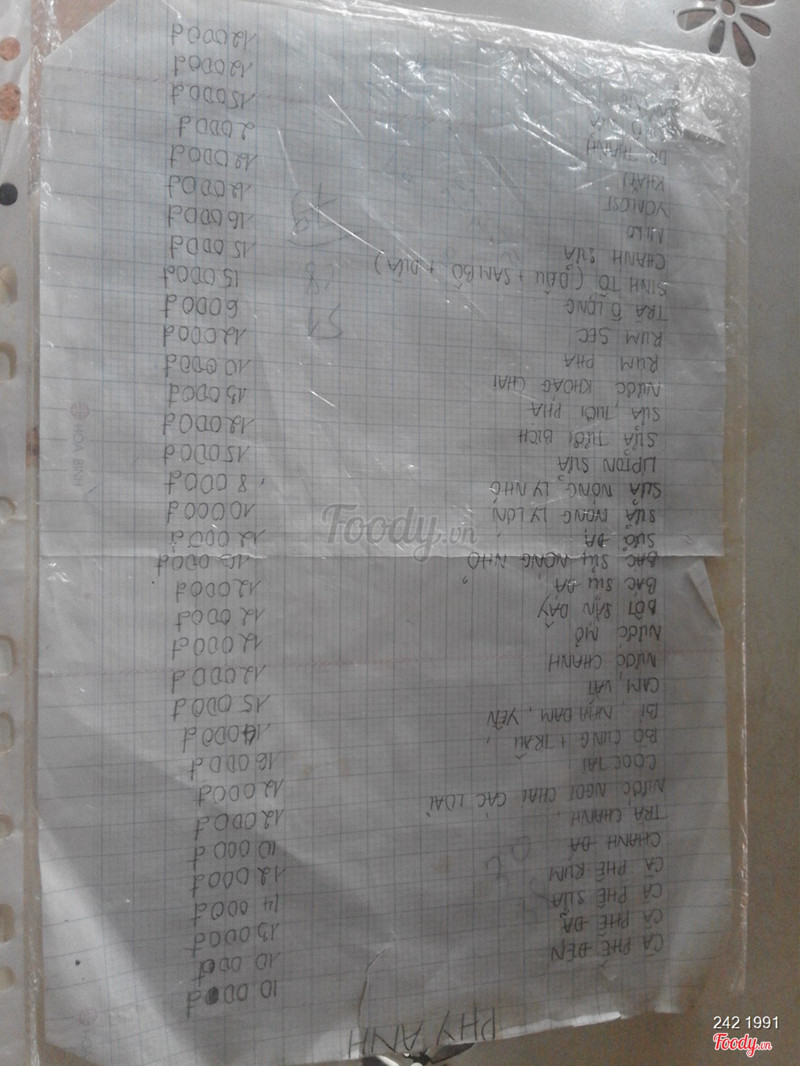 PHY ANH
CÀ PHÊ ĐEN 10 000đ
CÀ PHÊ ĐÁ 10 000đ
CÀ PHÊ SỮA 13 000đ
CÀ PHÊ RUM 14 000đ
CHANH ĐÁ 12 000đ
TRÀ CHANH 10 000đ
NƯỚC NGỌT CHAI CÁC LOẠI 12 000đ
COOCTAI 12 000đ
BÒ CỤNG + TRÂU 16 000đ
BÍ, NHA ĐAM, YẾN 14 000đ
CAM, VẮT 15 000đ
NƯỚC CHANH 12 000đ
NƯỚC MƠ 12 000đ
BỘT SẮN DÂY 12 000đ
BẠC SỈU ĐÁ 12 000đ
BẠC SỈU NÓNG NHỎ 10 000đ
SỮA ĐÁ 12 000đ
SỮA NÓNG LY LỚN 10 000đ
SỮA NÓNG LY NHỎ 8 000đ
LIPTON SỮA 15 000đ
SỮA TƯƠI BỊCH 12 000đ
SỮA TƯƠI PHA 13 000đ
NƯỚC KHOÁNG CHAI 10 000đ
RUM PHA 12 000đ
RUM SEC 6 000đ
TRÀ Ô LONG 15 000đ
SINH TỐ (DÂU + SAMBÔ + DỪA) 15 000đ
CHANH SỮA 16 000đ
MILO 12 000đ
YOMOST 12 000đ
KHĂN 2 000đ
15 000đ
12 000đ
12 000đ
51
68
HÒA BÌNH
Foody.vn
242 1991
Foody.vn